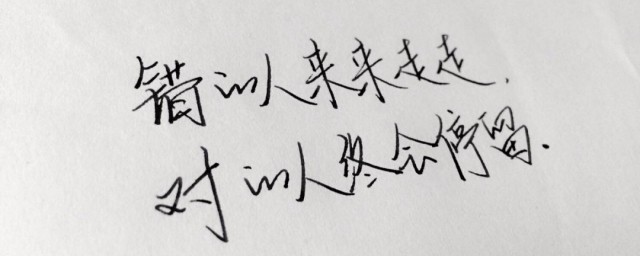 错的人来来走走.
对的人终会停留.